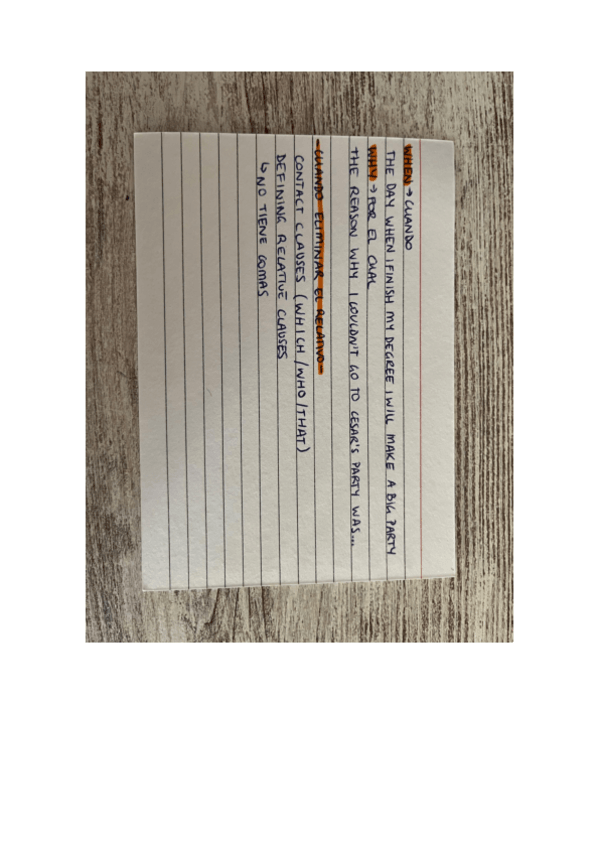 WHEN → CUANDO
THE DAY WHEN I FINISH MY DEGREE I WILL MAKE A BIG PARTY
WHY → POR EL CUAL
THE REASON WHY I COULDN'T GO TO CESAR'S PARTY WAS...
- CUANDO ELIMINAR EL RELATIVO -
CONTACT CLAUSES (WHICH / WHO / THAT)
DEFINING RELATIVE CLAUSES
↳ NO TIENE COMAS